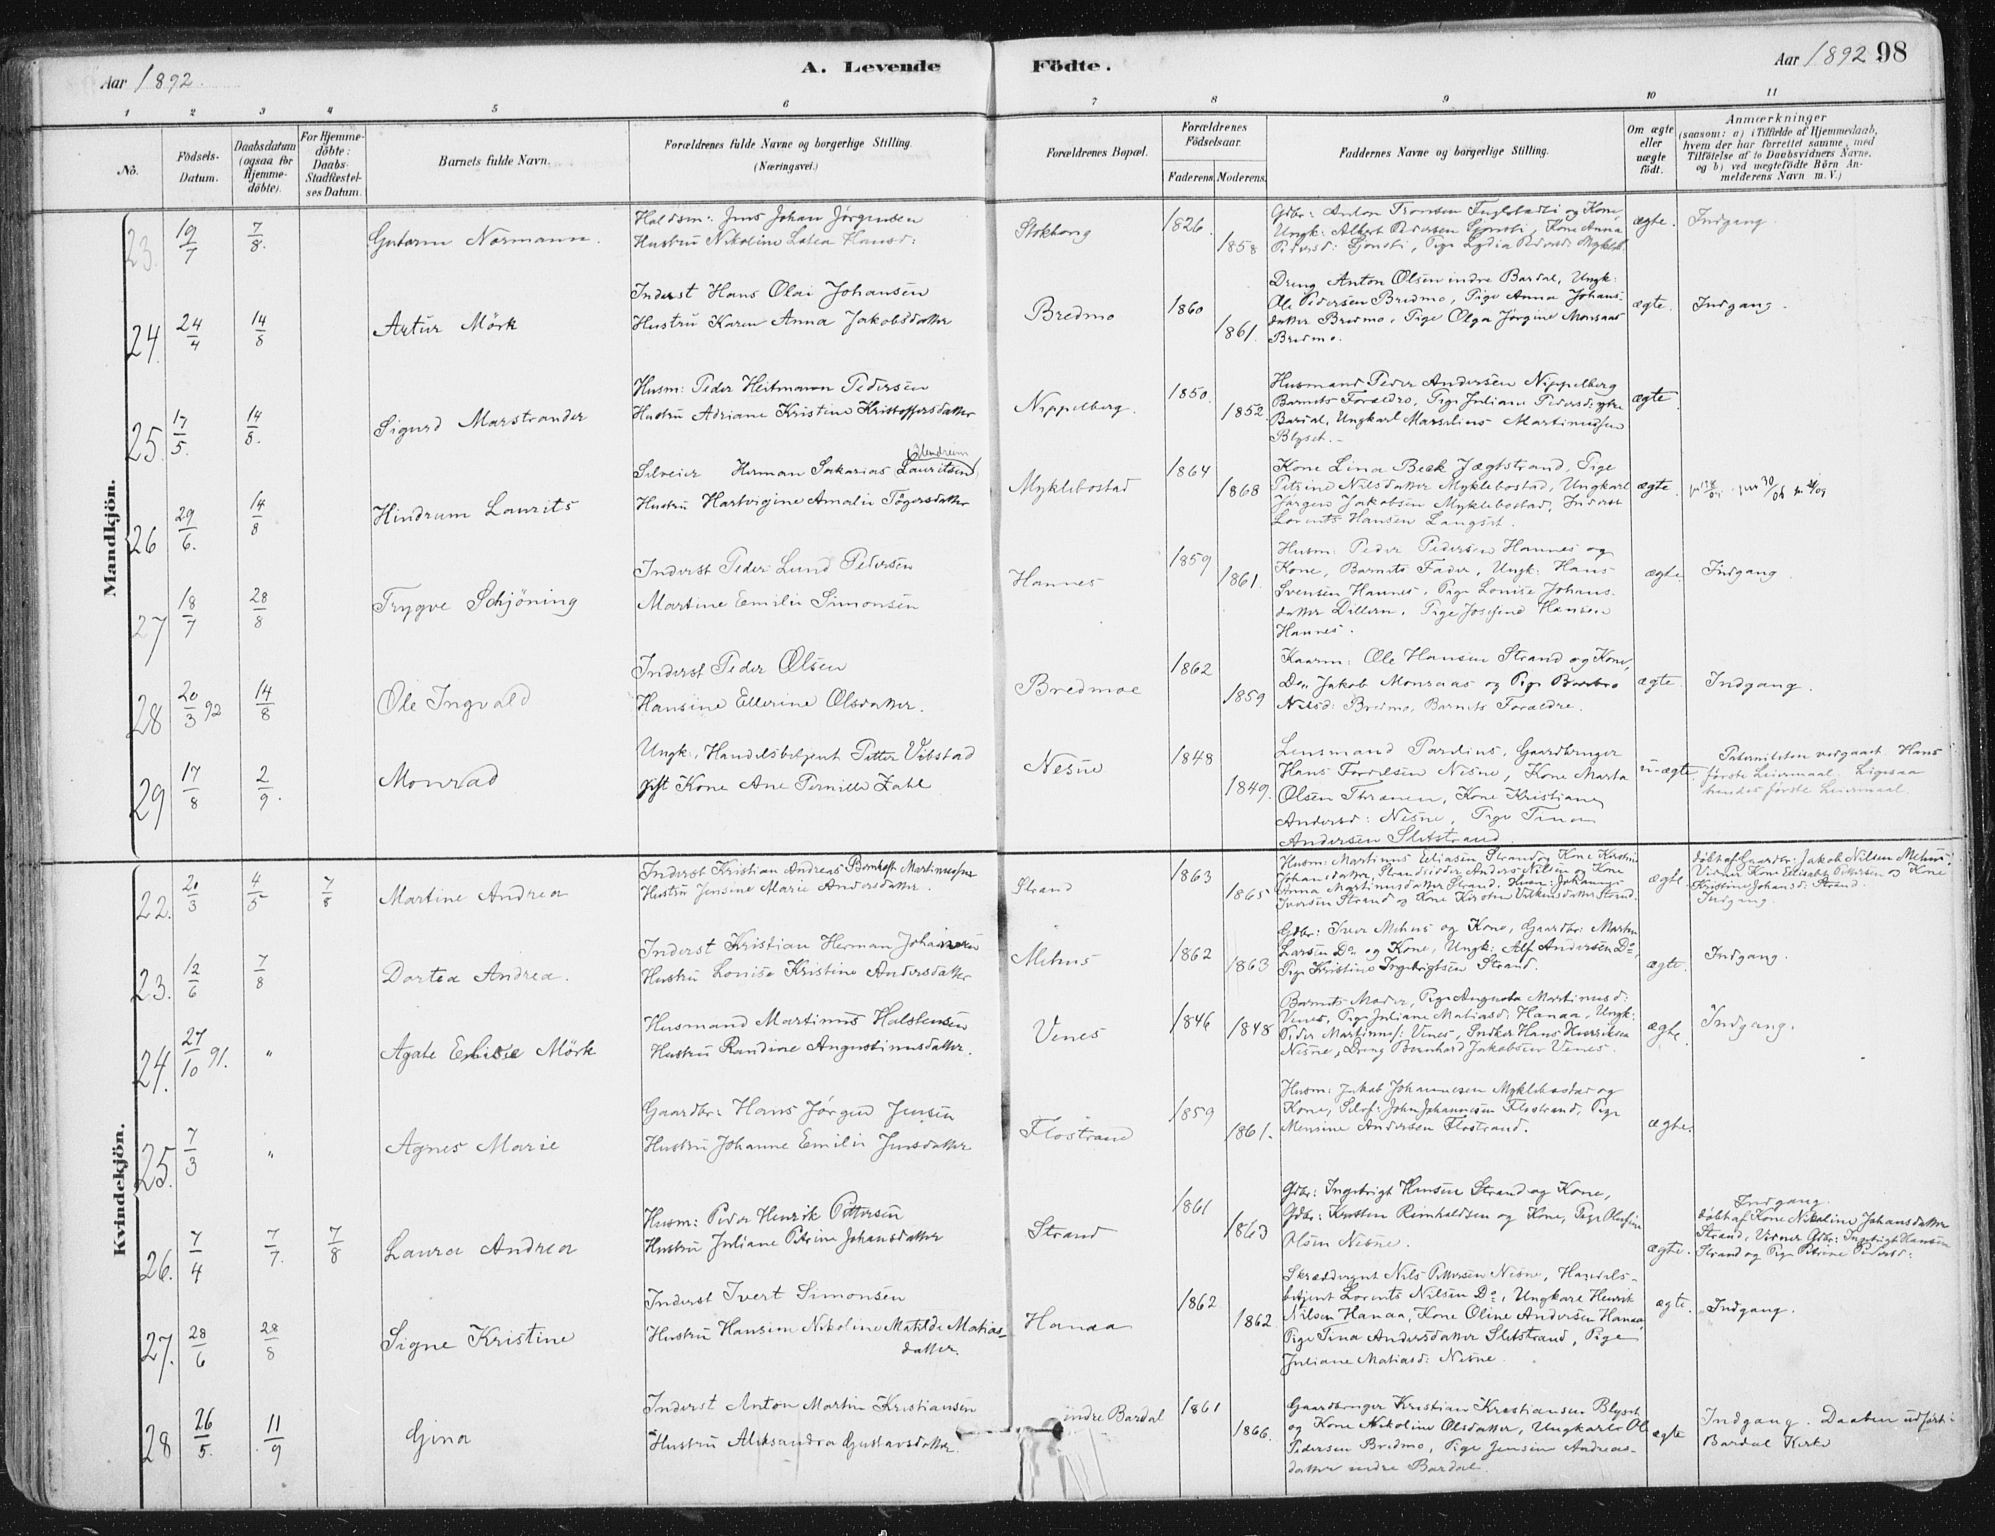 Aar 1892.
A. Levende Födte.
Aar 1892 98
1 2 3 4 5 6 7 8 9 10 11
No.
Födsels-Datum.
Daabsdatum (ogsaa for Hjemme-döbte).
For Hjemme-döbte: Daabs-Stadfæstel-ses Datum.
Barnets fulde Navn.
Forældrenes fulde Navne og borgerlige Stilling. (Næringsvei.)
Forældrenes Bopæl.
Forældrenes Födselsaar.
Faderens. Moderens.
Faddernes Navne og borgerlige Stilling.
Om ægte eller uægte födt.
Anmærkninger (saasom: a) i Tilfælde af Hjemmedaab, hvem der har forrettet samme, med Tilföielse af to Daabsvidners Navne, og b) ved uægtefödte Börn An-melderens Navn m. V.)
Mandkjön.
23. 19/7 7/8. Gutorm Normann.
Jens Johan Jørgensen
Hustru Nikoline Hansd:
1826. 1858
Gdbr: Anton og Kone,
Ungk: Albert Pedersen Kone Anna
Pedersd: Pige Lydia
ægte. Indgang.
24. 24/4 14/8 Artur Mörk
Inderst Hans Olai Johansen
Hustru Karen Anna Jakobsdatter
Bredmo 1860 1861.
Dreng Anton Olsen indre Bardal, Ungk:
Ole Pedersen Bredmo, Pige Anna Johans-
datter Bredmo, Pige Olga Jørgine Monsaas
Bredmo.
ægte. Indgang.
25. 17/5. 14/8. Sigurd Marstrander
Husm: Peder Heitmann Pedersen
Hustru Adriane Kristine Kristoffersdatter
Nippelberg. 1850. 1852.
Husmand Peder Andersen Nippelberg
Barnets Forældre, Pige Juliane Pedersd:
Bardal, Ungkarl Marselius Martinussen
Blyset.
ægte.
26 29/6. 14/8 Hindrum Laurits
Herman Sakarias Lauritsen
Hustru Hartvigine Amalie Tögersdatter
Myklebostad 1864 1868
Kone Lina Beck Jægtstrand, Pige
Petrine Nilsdatter Myklebostad, Ungkarl
Jørgen Jakobsen Myklebostad, Inderst
Lorents Hansen Langset.
ægte.
27 18/7 28/8 Trygve Schjöning
Inderst Peder Lund Pedersen
Martine Emilie Simonsen
Hannes 1859 1861.
Husm: Peder Pedersen Hannes og
Kone, Barnets Fader, Ungk: Hans
Svensen Hannes, Pige Louise Johans-
datter Dillern, Pige Josefine Hansen
Hannes.
ægte Indgang.
28 20/3 92 14/8 Ole Ingvald
Inderst Peder Olsen
Hansine Ellerine Olsdatter.
Bredmoe 1862 1859
Kaarm: Ole Hansen Strand og Kone,
Do. Jakob Monsaas og Pige Barbro
Nilsd: Bredmo, Barnets Forældre.
ægte. Indgang.
29 17/8 2/9. Monrad
Ungk: Handelsbetjent Petter Vibstad
gift Kone Ane Pernille Zahl
Nesne 1848 1849.
Lensmand Gaardbruger
Hans Nesne, Kone Marta
Olsen Kone Kristiane
Andersd: Nesne, Pige Tina
Andersen Sletstrand
u-ægte Paterniteten vedgaaet Hans
første Leiermaal. Ligesaa
hendes første Leiermaal.
Kvindekjön.
22. 20/3 4/5 7/8 Martine Andrea
Inderst Kristian Andreas Martinussen
Hustru Jensine Marie Andersdatter.
Strand 1863 1865
Husm: Martinus Eliasen Strand og Kone
Johansdatter, Strandsidder Anders Nilsen og Kone
Anna Martinusdatter Strand, Johannes
Iversen Strand og Kone Strand.
ægte. døbt af Gaardbr: Jakob Nilsen Mehus.
Vidner Kone Elisabet Pettersen og Kone
Kristine Johansd: Strand.
Indgang.
23. 12/6 7/8 Dortea Andrea.
Inderst Kristian Herman Johansen
Hustru Louise Kristine Andersdatter
Mehus 1862 1863
Gdbr: Iver Mehus og Kone, Gaardbr: Martin
Larsen Do. og Kone, Ungk: Alf Andersen Do.
Pige Kristine Ingebrigtsen Strand.
ægte. Indgang.
24. 27/10 91. " Agate Elise Mörk
Husmand Martinus Halstensen
Hustru Randine Augustinusdatter.
Venes 1846 1848
Barnets Moder, Pige Augusta Martinusd:
Venes, Pige Juliane Matiasd: Hanaa, Ungk:
Peder Martinuss: Venes, Hans Henriksen
Nesne, Dreng Bernhard Jakobsen Venes.
ægte. Indgang.
25. 7/3 " Agnes Marie
Gaardbr: Hans Jørgen Jensen
Hustru Johanne Emilie Jensdatter
Flostrand 1859 1861.
Husm: Jakob Johannesen Myklebostad og
Kone, John Johannesen Flostrand, Pige
Mensine Andersen Flostrand.
ægte.
26. 7/4 7/7. 7/8 Laura Andrea
Husm: Peder Henrik Pettersen
Hustru Juliane Petrine Johansdatter
Strand 1861 1863
Gdbr: Ingebrigt Hansen Strand og Kone,
Gdbr: Karsten Reinholdsen og Kone, Pige Olufine
Olsen Nesne.
ægte. Indgang.
døbt af Kone Nikoline Johansdatter
Strand, Vidner Gdbr: Ingebrigt Hansen
Strand og Pige Petrine Pedersd:
27. 28/6 28/8 Signe Kristine
Inderst Ivert Simonsen
Hustru Hansine Nikoline Matilde Matias-
datter.
Hanaa 1862 1862
Nils Pettersen Nesne, Handels-
betjent Lorents Nilsen Do., Ungkarl Henrik
Nilsen Hanaa, Kone Oline Andersen Hanaa,
Pige Tina Andersdatter Sletstrand, Pige
Juliane Matiasd: Nesne.
ægte. Indgang.
28 26/5. 11/9 Gina
Inderst Anton Martin Kristiansen
Hustru Aleksandra Gustavsdatter.
indre Bardal 1861 1866.
Gaardbruger Kristian Kristiansen Blyset
og Kone Nikoline Olsdatter, Ungkarl Ole
Pedersen Bredmo, Pige Jensine Andreas-
datter indre Bardal.
ægte Indgang. Daaben udført i
Bardal Kirke